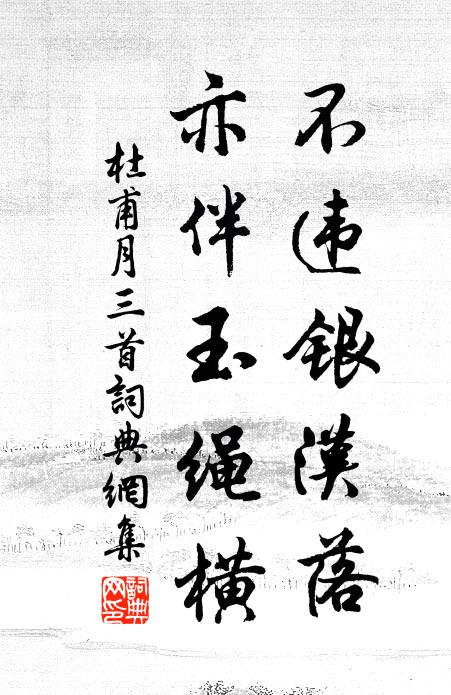 不违银汉落
亦伴玉绳横
杜甫月三首詞典網集
詞典
网印